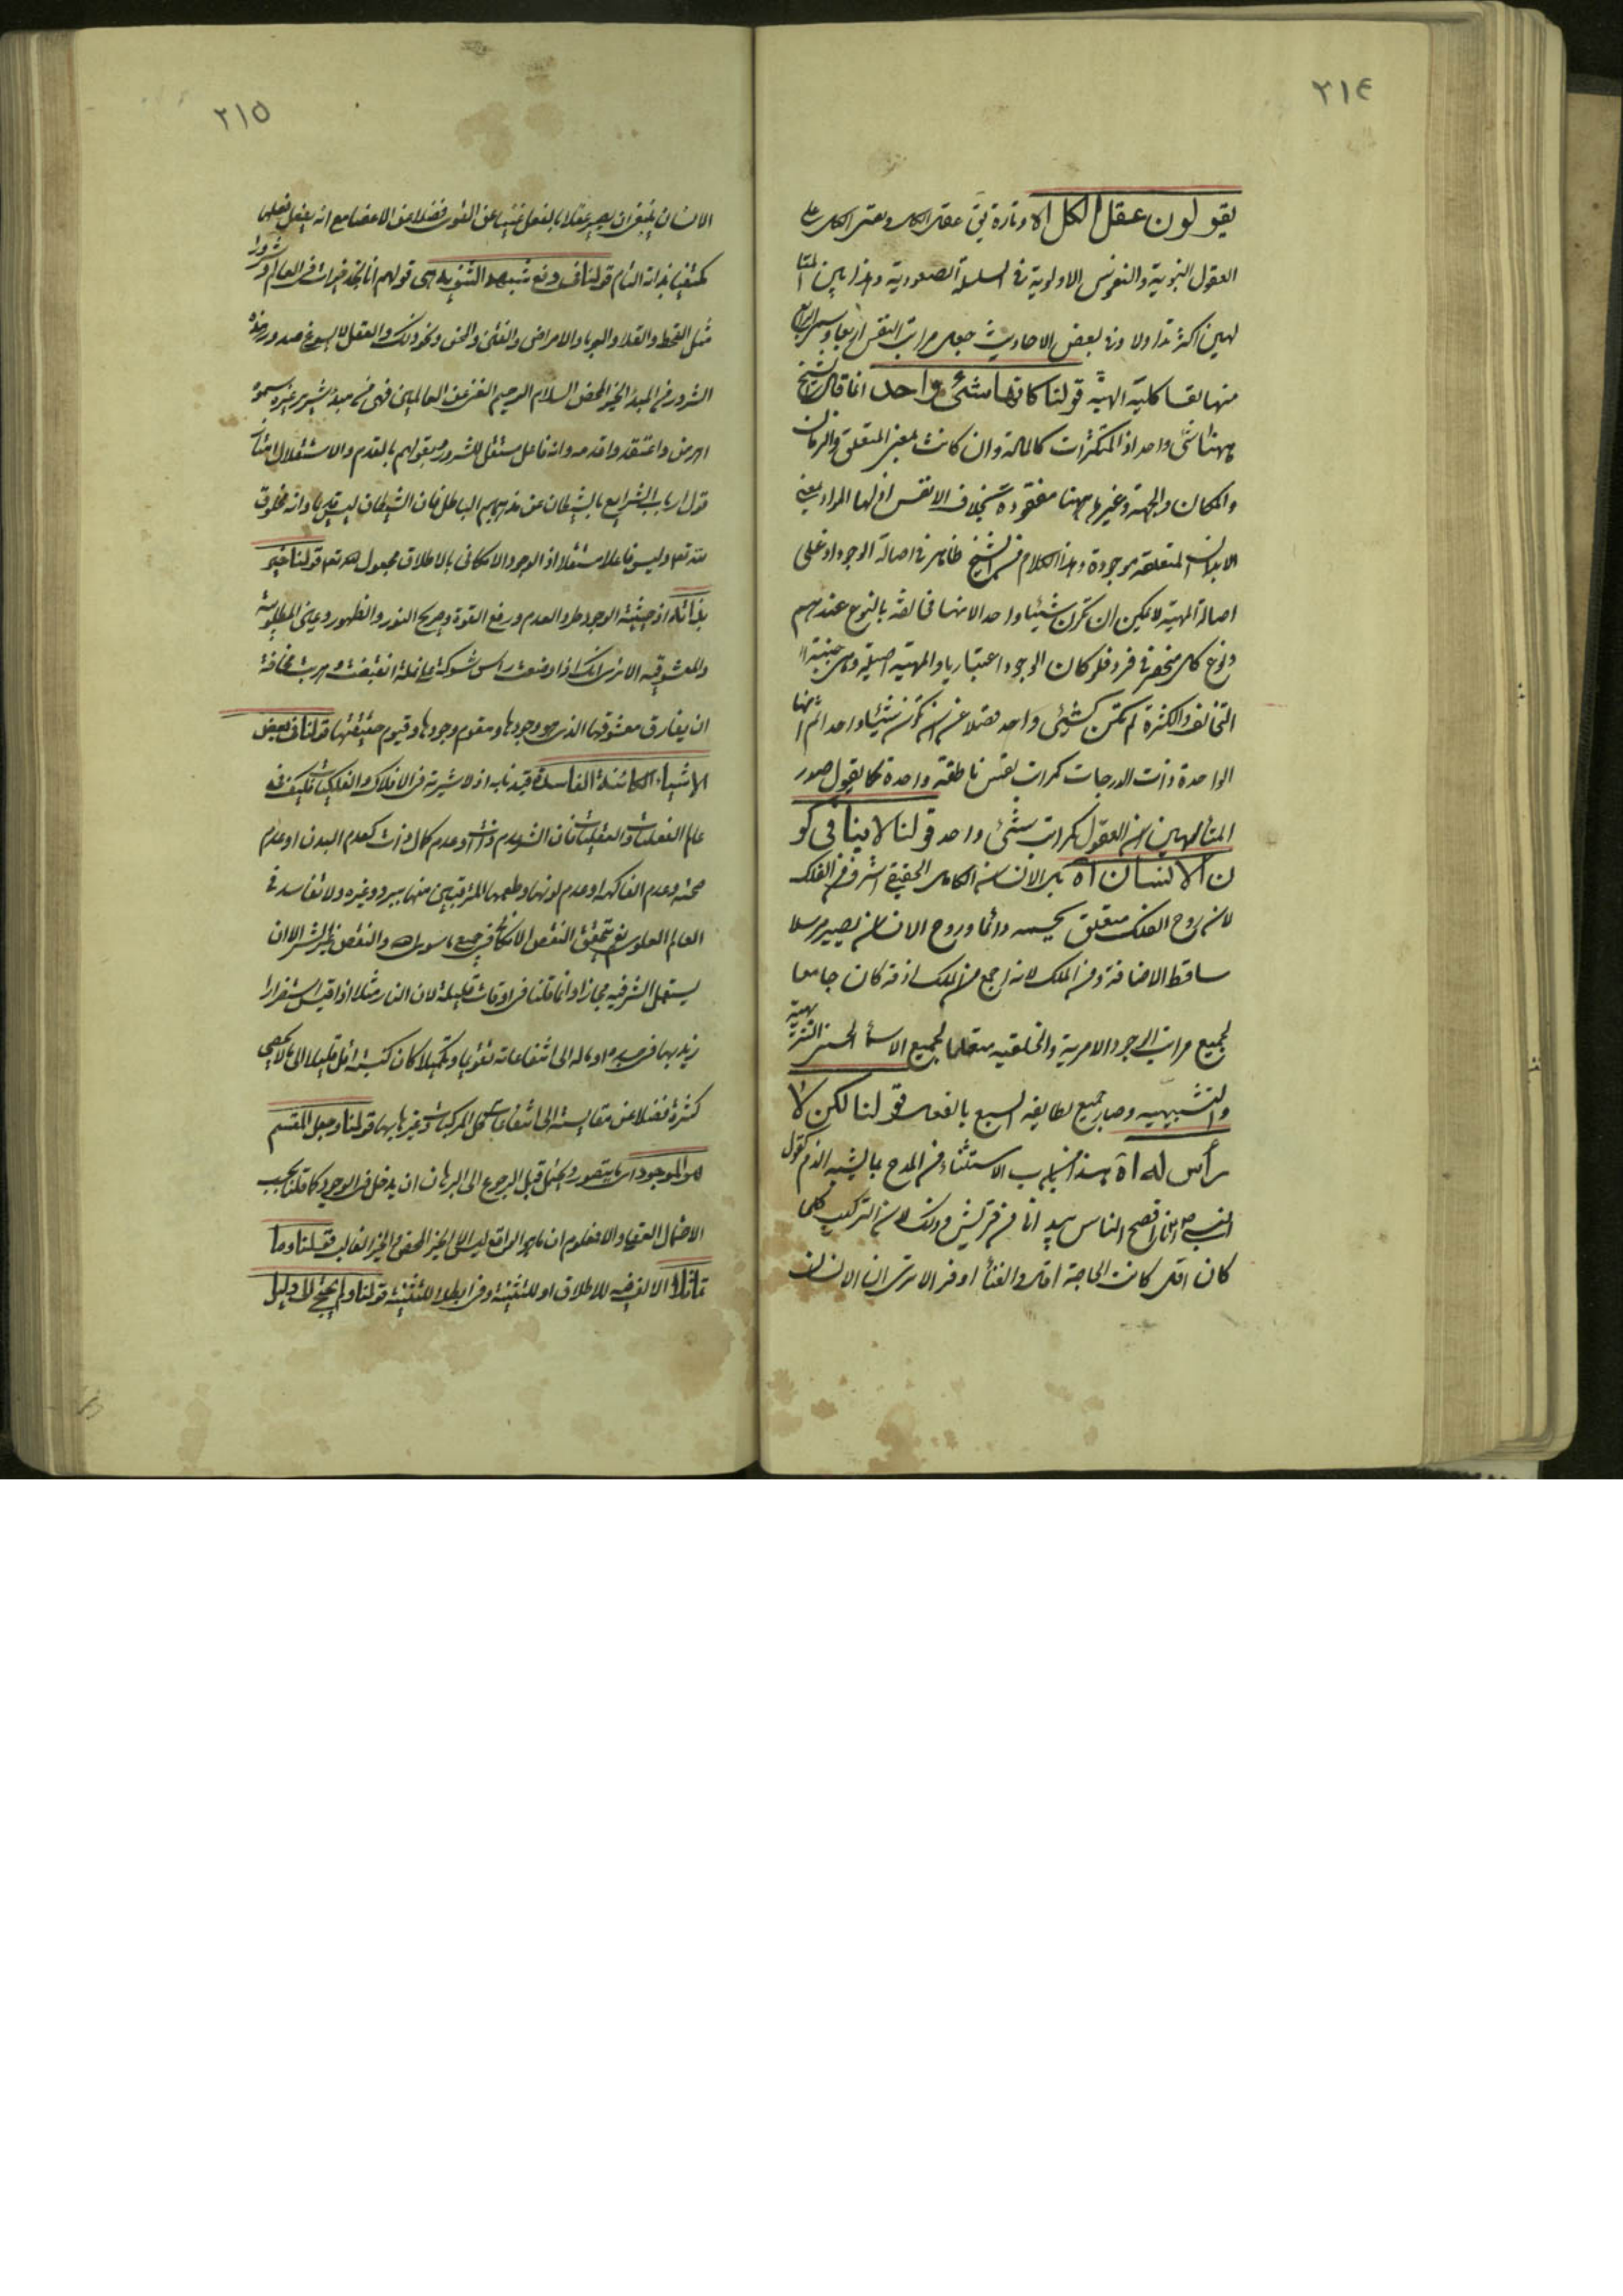 ٢١٤
يقولون عقل الكل اه وتارة يق عقل الكل ونفس الكل على
العقول النبوية والنفوس الاولوية فى السلسلة الصعودية وهذا بين المتا
لهين اكثر تداولا وفى بعض الاحاديث جعل مراتب النفس اربعا وسمى الرابع
منها نفسا كلية الهية قولنا كانها شئ واحد انما قال الشيخ
ههنا شئ واحد اذ المتكثرات كالمادة وان كانت بمعنى المتعلق والزمان
والمكان والجهة وغيرها ههنا مفقودة بخلاف الانفس اذ لها المواد بمعنى
الابدان المتعلقة موجودة وهذا الكلام من الشيخ ظاهر فى اصالة الوجود اذ على
اصالة المهية لا يمكن ان تكون شيئا واحدا لانها مخالفة بالنوع عندهم
ونوع كل منحصر فى فرد فلو كان الوجود اعتباريا والمهية اصيلة وهى حيثية
التخالف والكثرة لم تكن كشئ واحد فضلا عن ان تكون شيئا واحدا ثم انها
الواحدة ذات الدرجات كمراتب نفس ناطقة واحدة كما يقول صدر
المتألهين ان العقول كمراتب شئ واحد قولنا لا ينافى كو
ن الانسان اه بل الانسان الكامل الحقيقى اشرف من الفلك
لان روح الفلك متعلق بجسمه دائما وروح الانسان يصير مرسلا
ساقط الاضافة ومن الملك لانه اجمع من الملك اذ قد كان جامعا
لجميع مراتب الوجود الامرية والخلقية متعلما لجميع الاسماء الحسنى التنزيهية
والتشبيهية وصار جميع لطايفه السبع بالفعل قولنا لكن لا
رأس له اه هذا من باب الاستثناء من المدح بما يشبه الذم كقول
النبى ص انا افصح الناس بيد انى من قريش وذلك لان التركيب كلما
كان اقل كانت الحاجة اقل والغناء اوفر الا ترى ان الانسان
٢١٥
الانسان ينبغى ان يصير عقلا بالفعل غنيا عن القوى فضلا عن الاعضا مع انه يفعل فعلها
مكتفيا بذاته التام قولنا فى دفع شبهة الثنوية هى قولهم انا نجد خيرات فى العالم وشرورا
مثل القحط والغلا والوبا والامراض والفتن والمحن ونحو ذلك والعقل لا يسوغ صدور هذه
الشرور من المبدء الخير المحض السلام الرحيم الغنى عن العالمين فهى من مبدء شرير غيره سموه
اهرمن واعتقدوا قدمه وانه فاعل مستقل للشرور فبقولهم بالقدم والاستقلال امتاز
قول ارباب الشرايع بالشيطان عن مذهبهم الباطل فان الشيطان ليس قديما وانه مخلوق
لله تعالى وليس فاعلا مستقلا اذ الوجود الامكانى بالاطلاق مجعول لله تعالى قولنا خير
بذاته اذ حيثية الوجود طرد العدم ورفع القوة وصريح النور والظهور وعين المطلوبية
والمعشوقية الا ترى انك اذا وضعت راس شوكة على نملة انقبضت وهربت مخافة
ان يفارق معشوقها الذى هو وجودها ومقوم وجودها وقيوم حقيقتها قولنا فى بعض
الاشياء الكائنة الفاسدة قيد به اذ لا شرية فى الافلاك والفلكيات فكيف فى
عالم النفسيات والعقليات فان الشر عدم ذات او عدم كمال ذات كعدم البدن او عدم
صحته وعدم الفاكهة او عدم لونها وطعمها المترقبين منها ببرد وغيره ولا تفاسد فى
العالم العلوى نعم يتحقق النقص الامكانى فى جميع ما سوى الله والنقص غير الشر الا ان
يستعمل الشر فيه مجازا وانما قلنا فى اوقات قليلة لان النار مثلا اذا قيس استضرار
زيد بها فى بدنه او ماله الى انتفاعاته تقويا وتكميلا كان كنسبة اقل قليل الى ما لا يحصى
كثرة فضلا عن مقايسته الى انتفاعات كل المركبات وغيرها بها قولنا وجعل المقسم
هو الموجود اى ما يتصور ويحتمل قبل الرجوع الى البرهان ان يدخل فى الوجود كما قلنا بحسب
الاحتمال العقلى والا فمعلوم ان ما هو الواقع ليس الا الخير المحض والخير الغالب فقلنا وما
تماثلا الالف فيه للاطلاق او للتثنية وفى ابطلا للتثنية قولنا ولم يحتج الى دليل